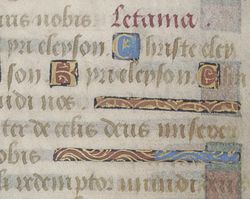 nus nobis Letania.
yrieleyson. Christe eley
son. Kyrieleyson. C
udi nos
ter de celis deus misere
obis
li redemptor mundi